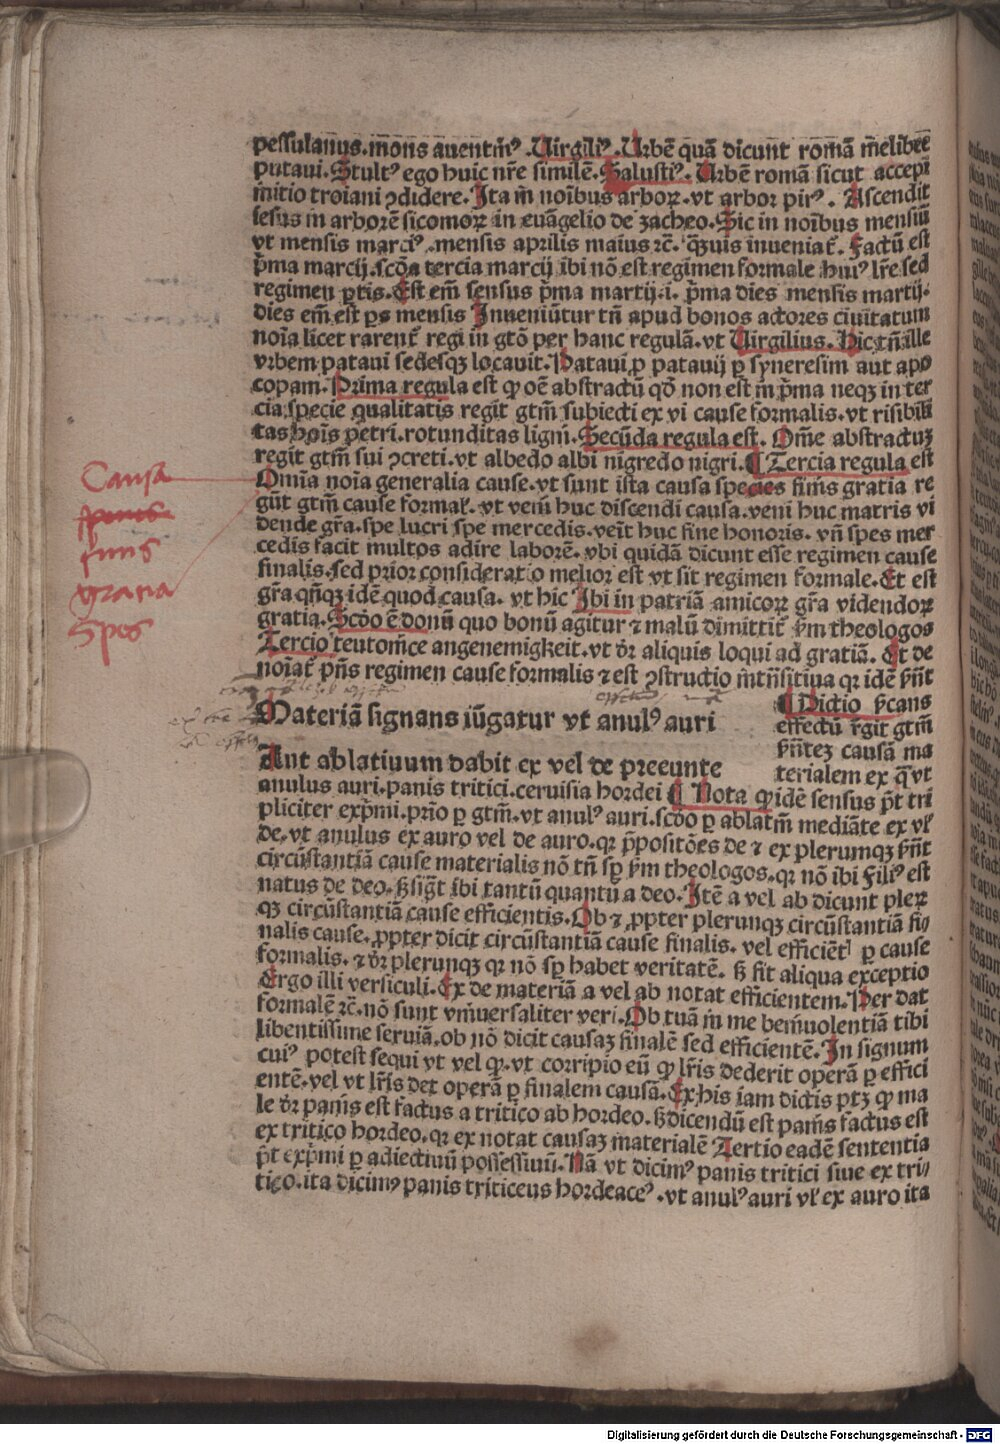 pessulanus.mons auentinꝰ.Uirgiliꝰ.Urbē quā dicunt romā melibee
putaui.Stultꝰ ego huic nr̄e similē.Salustiꝰ.Urbē romā sicut accepi
initio troiani ꝯdidere.Ita in noībus arboꝝ.vt arbor pirꝰ. Ascendit
iesus in arborē sicomoꝝ in euāgelio de zacheo.Sic in noībus mensiū
vt mensis marciꝰ.mensis aprilis maius ꝛc̄. qꝫuis inueniat̄. Factū est
p̄ma marcij.scd̄a tercia marcij ibi nō est regimen formale huiꝰ lr̄e sed
regimen ꝑtis.Est em̄ sensus p̄ma martij.i. p̄ma dies mensis martij.
dies em̄ est ꝑs mensis Inueniūtur tn̄ apud bonos actores ciuitatum
noīa licet rarent̄ regi in gtō per hanc regulā.vt Uirgilius.Hic tn̄ ille
vrbem pataui sedesqꝫ locauit.Pataui ꝓ patauij ꝑ syneresim aut apo
copam.Prima regula est ꝙ oē abstractū qd̄ non est in p̄ma neqꝫ in ter
cia specie qualitatis regit gtm̄ subiecti ex vi cause formalis.vt risibili
tas hoīs petri.rotunditas ligni.Secūda regula est. Om̄e abstractuꝫ
regit gtm̄ sui ꝯcreti.vt albedo albi nigredo nigri.¶ Tercia regula est
Omīa noīa generalia cause.vt sunt ista causa species finis gratia re
gūt gtm̄ cause formał.vt veni huc discendi causa.veni huc matris vi
dende gr̄a.spe lucri spe mercedis.veīt huc fine honoris. vn̄ spes mer
cedis facit multos adire laborē.vbi quidā dicunt esse regimen cause
finalis.sed prior consideratio melior est vt sit regimen formale.Et est
gr̄a qn̄qꝫ idē quod causa. vt hic Ibi in patriā amicoꝝ gr̄a videndoꝝ
gratia.Scd̄o ē donū quo bonū agitur ⁊ malū dimittit̄ ẜm theologos
Tercio teutonīce angenemigkeit.vt dr̄ aliquis loqui ad gratiā. Et de
noīat̄ pn̄s regimen cause formalis ⁊ est ꝯstructio intn̄sitiua qꝛ idē p̄n̄t
Materiā signans iūgatur vt anulꝰ auri
Aut ablatiuum dabit ex vel de preeunte
¶ Dictio p̄cans
effectū r̄git gtm̄
p̄n̄teꝫ causā ma
terialem ex q̄ vt
anulus auri.panis tritici.ceruisia hordei ¶ Nota ꝙ idē sensus p̄t tri
pliciter exp̄mi.prīo ꝑ gtm̄.vt anulꝰ auri.scd̄o ꝑ ablatm̄ mediāte ex vł
de.vt anulus ex auro vel de auro.qꝛ p̄positōes de ⁊ ex plerumqꝫ p̄n̄t
circūstantiā cause materialis nō tn̄ sꝑ ẜm theologos.qꝛ nō ibi Filiꝰ est
natus de deo.ß sigt̄ ibi tantū quantū a deo.Itē a vel ab dicunt pleꝝ
qꝫ circūstantiā cause efficientis.Ob ⁊ ꝓpter plerunqꝫ circūstantiā fi⸗
nalis cause.ꝓpter dicit circūstantiā cause finalis. vel efficiēt ꝑ cause
formalis. ⁊ dr̄ plerunqꝫ qꝛ nō sꝑ habet veritatē. ß fit aliqua exceptio
Ergo illi versiculi.Ex de materiā a vel ab notat efficientem.Per dat
formalē ꝛc̄.nō sunt vniuersaliter veri.Ob tuā in me beniuolentiā tibi
libentissime seruiā.ob nō dicit causaꝫ finalē sed efficientē.In signum
cuiꝰ potest sequi vt vel ꝙ.vt corripio eū ꝙ lr̄is dederit operā ꝑ effici
entē.vel vt lr̄is det operā ꝑ finalem causā.Ex his iam dictis ptꝫ ꝙ ma
le dr̄ panis est factus a tritico ab hordeo.ß dicendū est panis factus est
ex tritico hordeo.qꝛ ex notat causaꝫ materialē Tertio eadē sententia
p̄t exp̄mi ꝑ adiectiuū possessiuū.Nā vt dicimꝰ panis tritici siue ex tri⸗
tico.ita dicimꝰ panis triticeus hordeaceꝰ.vt anulꝰ auri vł ex auro ita
Causa
finis
gratia
Spes
Digitalisierung gefördert durch die Deutsche Forschungsgemeinschaft - DFG